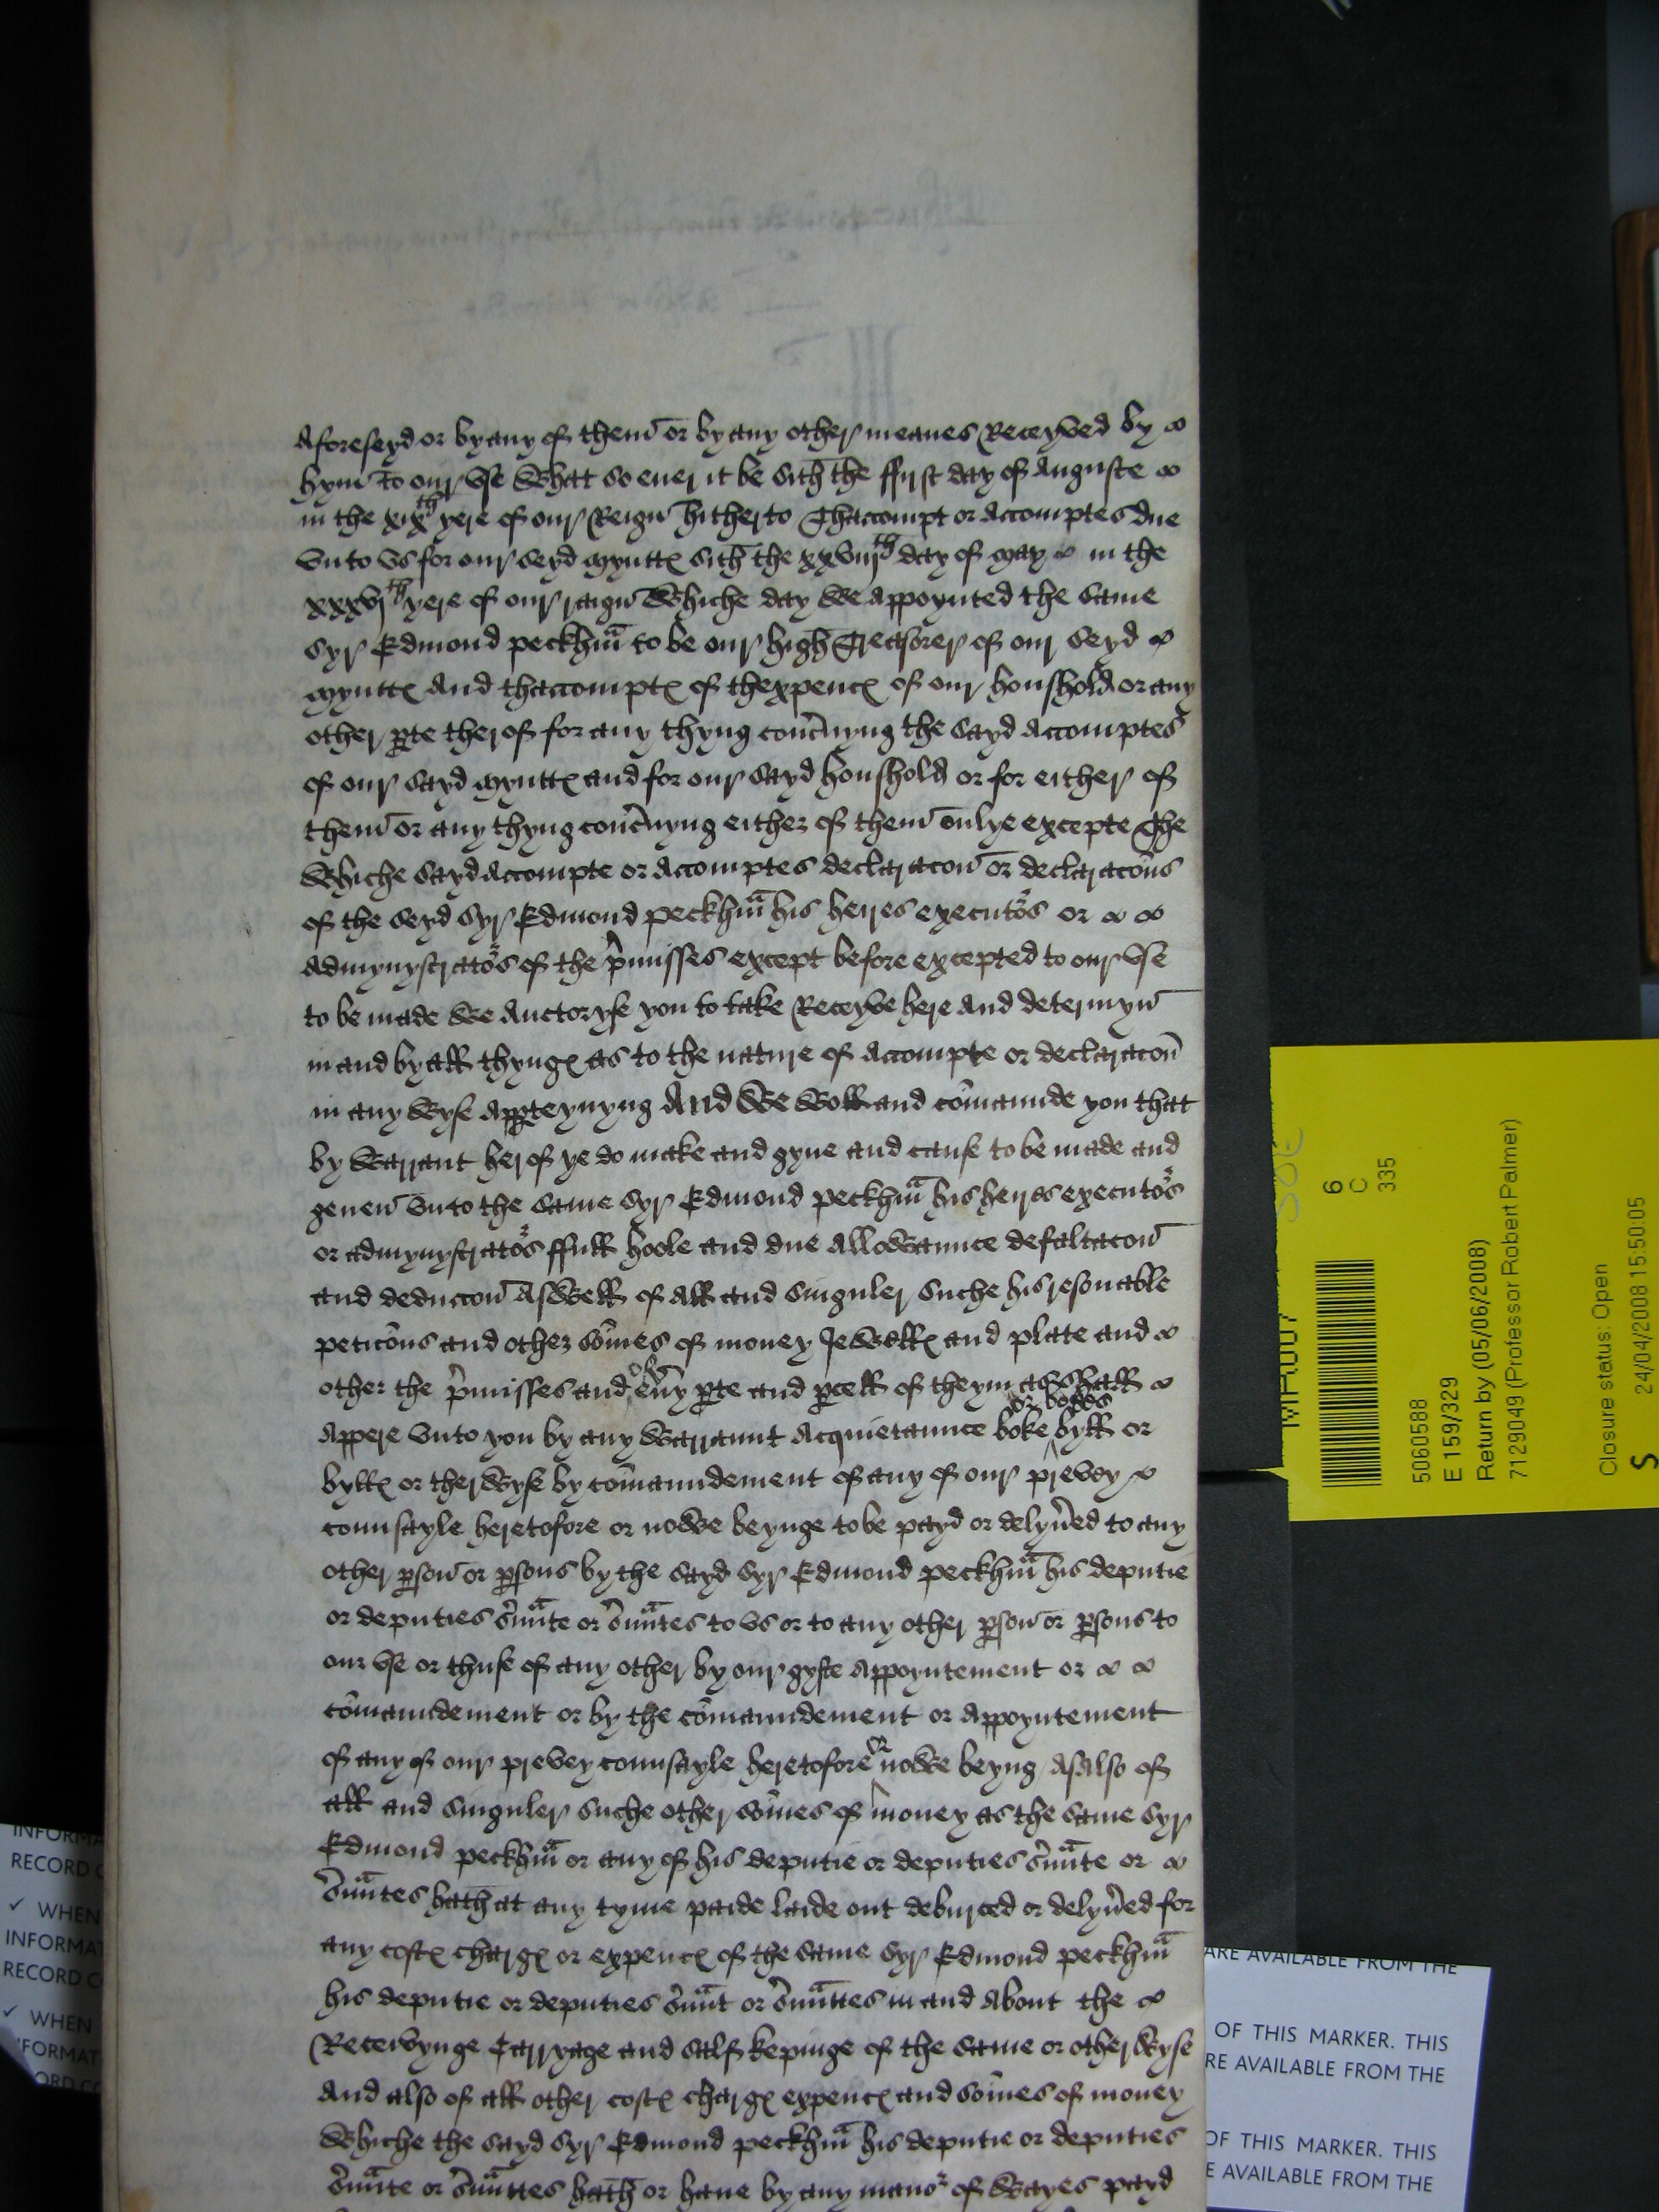 Aforeseyd or by any of them or by any other meanes Receyved by
hym to our use What so ever it be sith the ffirst day of Auguste
in the xixth yere of our Reign hitherto Thaccompt or accomptes due
unto us for our seyd mynttes sith the xxviijth day of may in the
xxxvjth yere of our raign Whiche day We appoynted the same
Syr Edmond peckhma to be our high Treasorer of our seyd
mynttes And thaccomptes of thexpences of our houshold or any
other pte therof for any thyng concnyng the sayd Accomptes
of our sayd mynttes and for our sayd houshold or for either of
them or any thyng concnyng either of them onlye excepte The
Whiche sayd Accompte or Accomptes declaracon or declaracons
of the seyd Syr Edmond peckhma his heires executors or
admynystrators of the pmisses except before excepted to our use
to be made We Auctoryse you to take Receyve here And determyn
in and by all thynges as to the nature of Accompte or declaracon
in any Wyse appteynyng And We Woll and comaunde you that
by Warrant herof ye do make and gyve and cause to be made and
geven unto the same Syr Edmond peckhma his heires executors
or admynystrators ffull hoole and due Allowaunce defaltacon
and deduccon Aswell of All and singuler suche his resonable
peticons and other somes of money Jewelles and plate and
other the pmisses and of evy pte and pcell of theym as shall
Appere unto you by any Warraunt Acquietaunce boke or bokes byll or
bylles or therwyse by comaundement of any of our prevey
counsayle heretofore or nowe beynge to be payd or delyved to any
other pson or psons by the sayd Syr Edmond peckhma his deputie
or deputies svunte or svuntes to us or to any other pson or psons to
our use or thuse of any other by our gyfte Appoyntement or
comaundement or by the comaundement or Appoyntement
of any of our prevey counsayle heretofore or nowe beyng Asalso of
all and singuler suche other somes of money as the same Syr
Edmond peckhma or any of his deputie or deputies svunte or
svuntes hath at any tyme paide laide out deburced or delyved for
any costes charges or expences of the same Syr Edmond peckhma
his deputie or deputies svunt or svunttes in and About the
Receivynge Carryage and salf kepinge of the same or otherwyse
And also of all other costes charges expences and somes of money
Whiche the sayd Syr Edmond peckhma his deputie or deputies
svunte or svunttes hath or have by any maner of Wayes payd
MR007
6
C
335
5060588
E 159/329
Return by (05/06/2008)
7129049 (Professor Robert Palmer)
Closure status: Open
24/04/2008 15:50:05
S
INFORMA
RECORD C
✓ WHEN
INFORMAT
RECORD C
✓ WHEN
ARE AVAILABLE FROM THE
OF THIS MARKER. THIS
RE AVAILABLE FROM THE
OF THIS MARKER. THIS
E AVAILABLE FROM THE